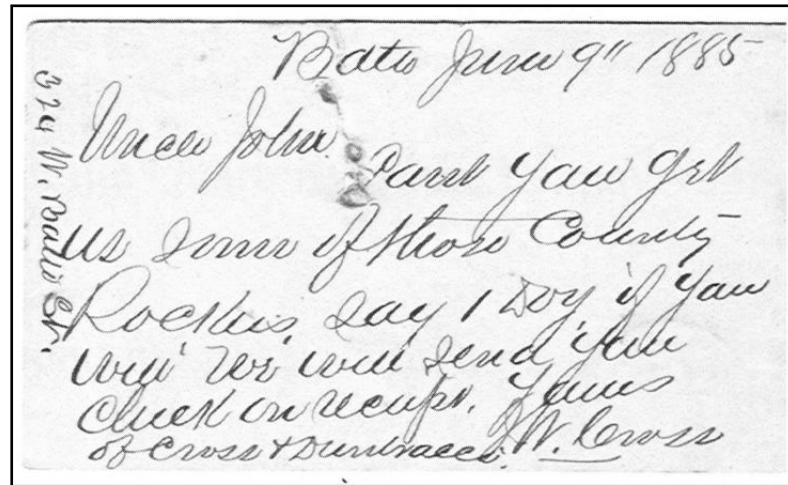 Balto June 9" 1885
Uncle John.
Cant You get
us some of those County
Rockers, say 1 Doz, if you
will we will send you
check on receipt. Yours
J.W. Cross
of Cross &
324 W. Balto St.